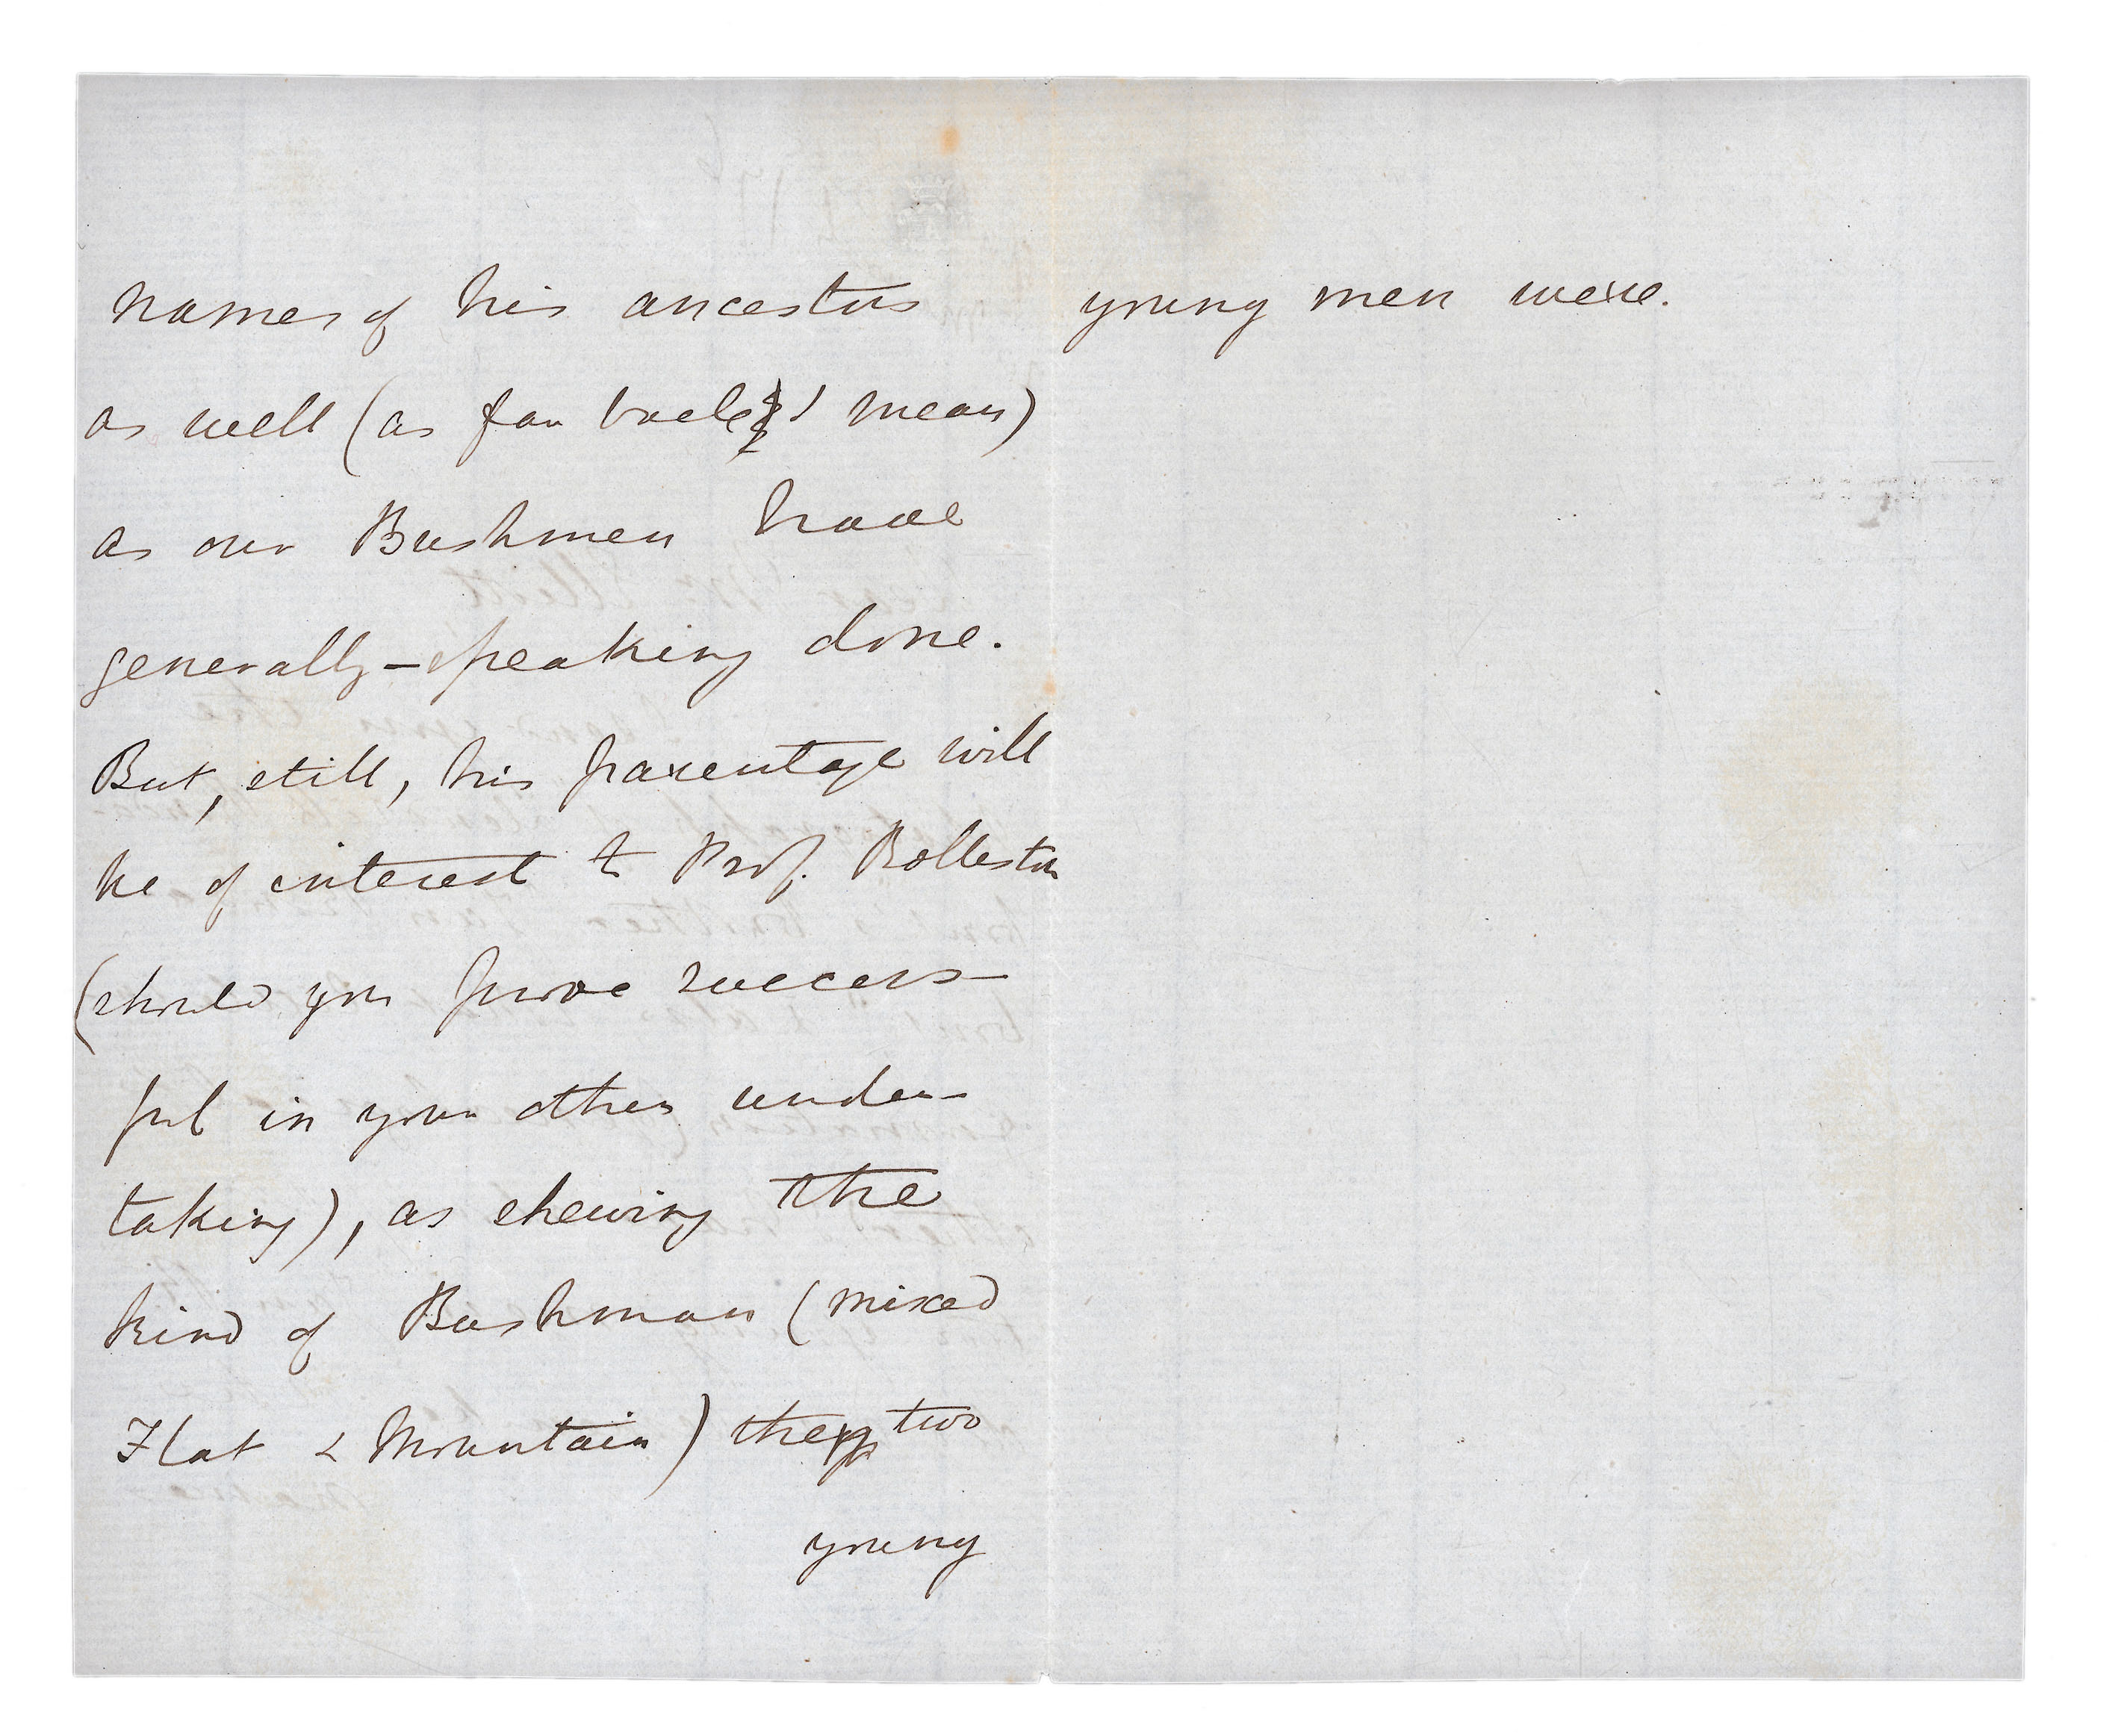 names of his ancestors
as well (as far back, I mean)
as our Bushmen have
generally-speaking done.
But, still, his parentage will
be of interest to Prof. Rolleston
(should you prove success-
ful in your other under-
taking), as shewing the
kind of Bushman (mixed
Flat & Mountain) the two
young
young men were.